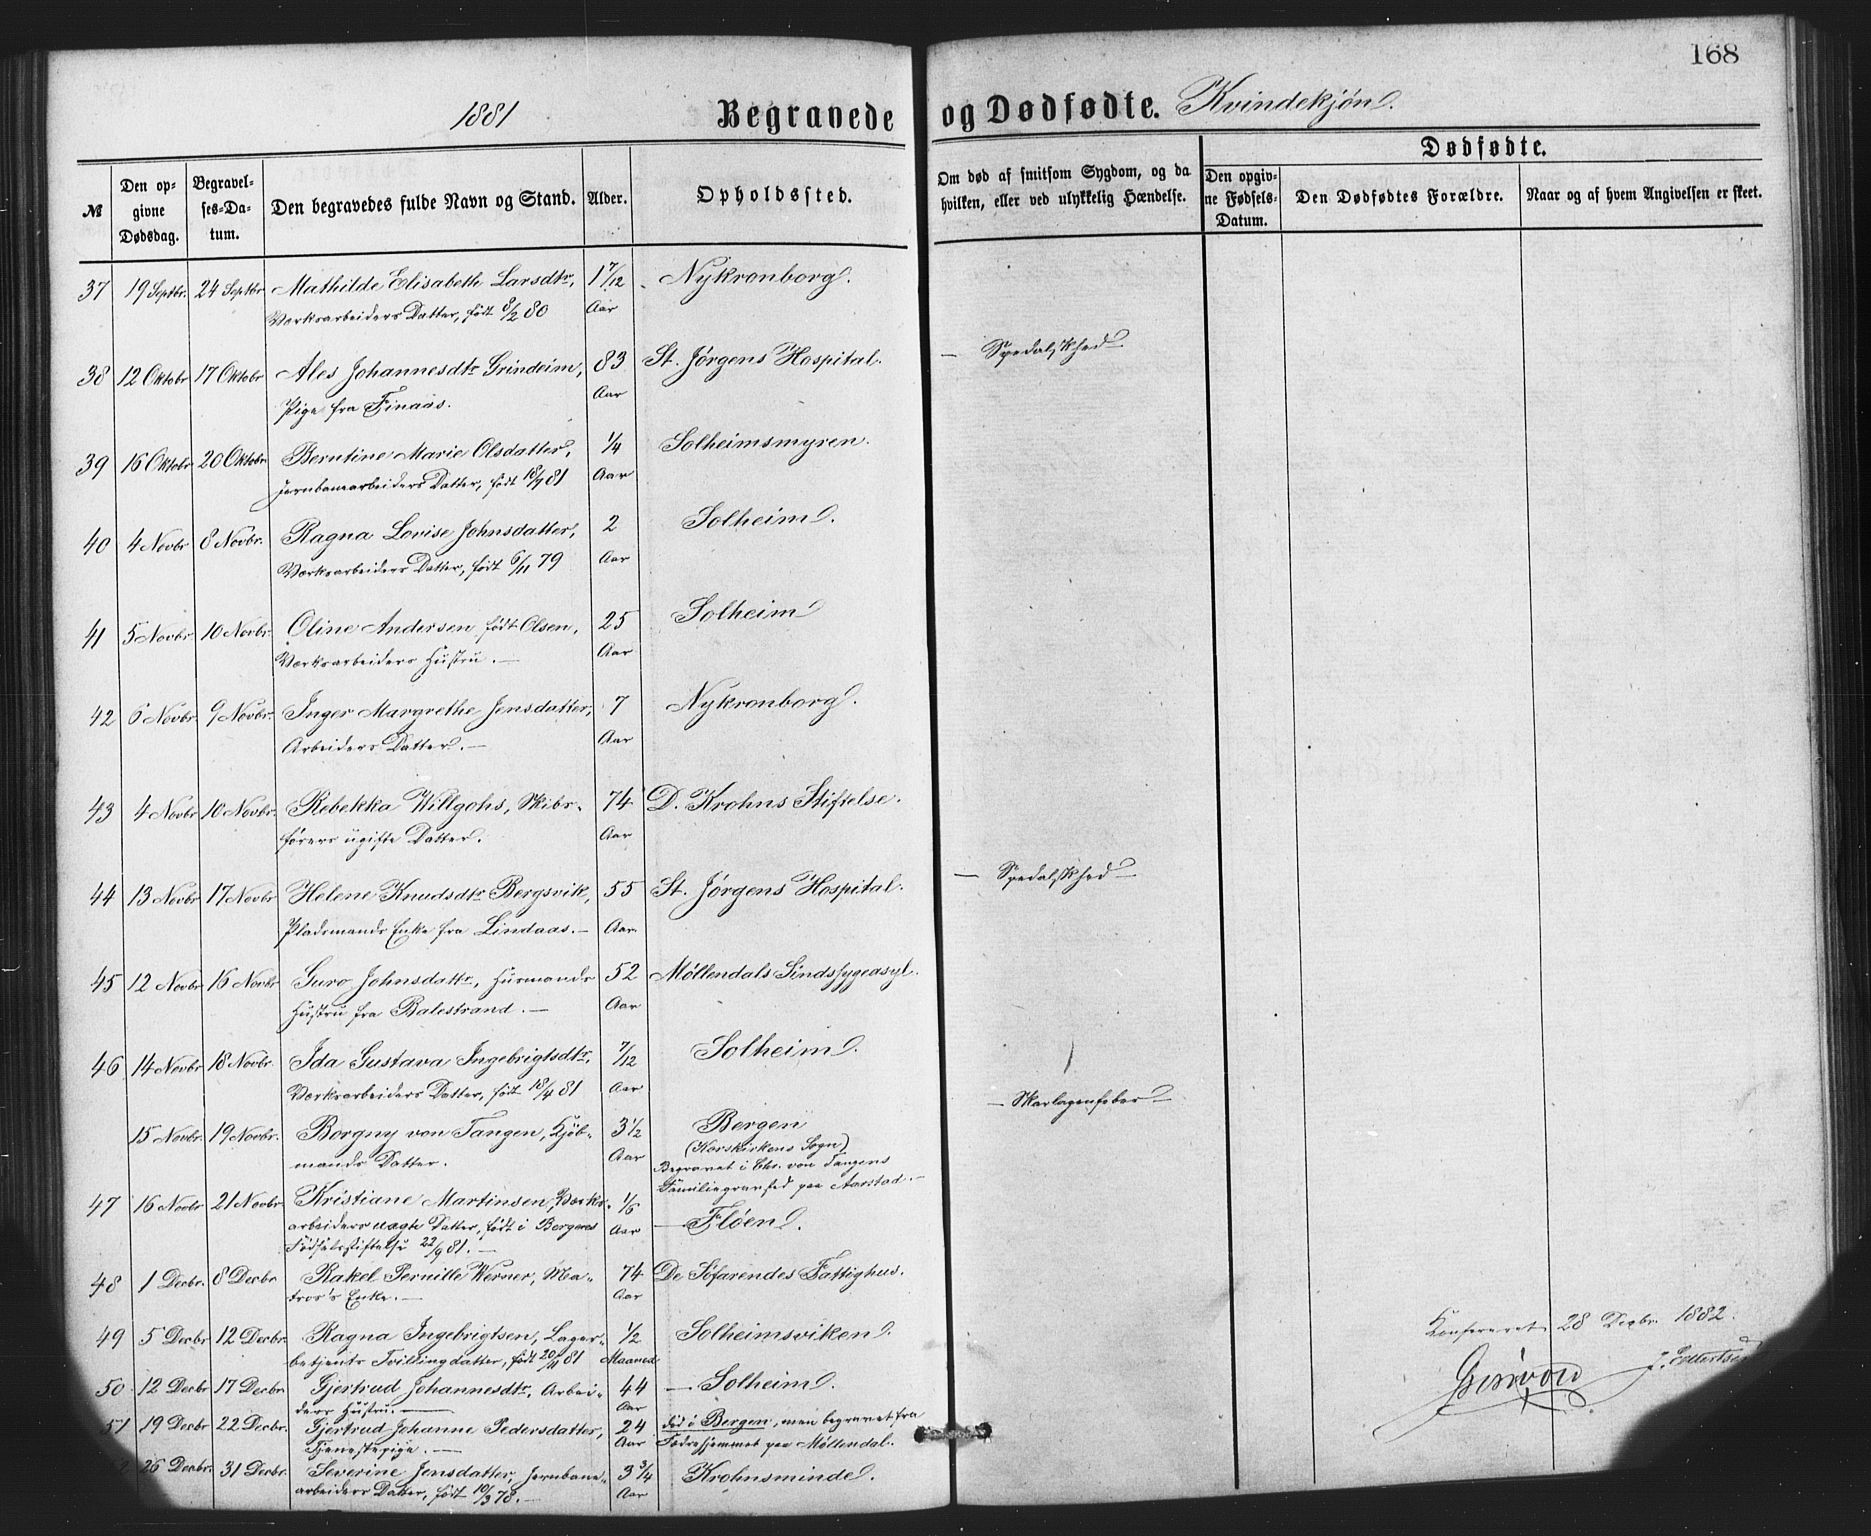 168
1881 Begravede og Dødfødte. Kvindekjøn.
№
Den opgivne Dødsdag.
Begravelses-Datum.
Den begravedes fulde Navn og Stand.
Alder.
Opholdssted.
Om død af smitsom Sygdom, og da hvilken, eller ved ulykkelig Hændelse.
Dødfødte.
Den opgivne Fødsels-Datum.
Den Dødfødtes Forældre.
Naar og af hvem Angivelsen er skeet.
37 19 Septbr. 24 Septbr Mathilde Elisabeth Larsdtr, 1 7/12 Nykronborg.
Værksarbeiders Datter, født 8/2 80 Aar
38 12 Oktobr 17 Oktobr Ales Johannesdtr Grindeim, 83 St. Jørgens Hospital. — Spedalskhed —
Pige fra Finaas. Aar
39 16 Oktobr 20 Oktobr Berntine Marie Olsdatter, 1/4 Solheimsmyren.
Jernbanearbeiders Datter, født 18/7 81 Aar
40 4 Novbr 8 Novbr. Ragna Lovise Johnsdatter, 2 Solheim.
Værksarbeiders Datter, født 6/11 79 Aar
41 5 Novbr 10 Novbr. Oline Andersen født Olsen, 25 Solheim
Værksarbeiders Hustru. — Aar
42 6 Novbr 9 Novbr. Inger Margrethe Jensdatter, 7 Nykronborg.
Arbeiders Datter. — Aar
43 4 Novbr 10 Novbr. Rebekka Willgohs, Skibs- 74 D. Krohns Stiftelse.
førers ugifte Datter. Aar
44 13 Novbr 17 Novbr Helene Knudsdtr Bergsvik, 55 St. Jørgens Hospital. — Spedalskhed —
Pladsmands Enke fra Lindaas. — Aar
45 12 Novbr 16 Novbr Guro Johnsdattr, Husmands 52 Møllendals Sindssygeasyl.
Hustru fra Balestrand. — Aar
46 14 Novbr 18 Novbr. Ida Gustava Ingebrigtsdtr, 7/12 Solheim.
Værksarbeiders Datter, født 18/4 81 Aar
— Skarlagensfeber —
15 Novbr. 19 Novbr. Borgny von Tangen, Kjøb- 3 1/2 Bergen
mands Datter. Aar (Korskirkens Sogn)
Begravet i Chr. von Tangens
Familiegravsted paa Aarstad. —
47 16 Novbr 21 Novbr Kristiane Martinsen, Værks- 1/6 — Fløen.
arbeiders uægte Datter, født i Bergens Aar
Fødselsstiftelse 22/9 81. —
48 1 Decbr. 8 Decbr Rakel Pernille Werner, Ma- 74 De Søfarendes Fattighus.
tros's Enke. — Aar
49 5 Decbr 12 Decbr. Ragna Ingebrigtsen, Lager- 1/2 Solheimsviken.
betjents Tvillingdatter, født 20/11 81 Maaned
50 12 Decbr 17 Decbr Gjertrud Johannesdtr, Arbei- 44 — Solheim.
ders Hustru. — Aar
51 19 Decbr 22 Decbr. Gjertrud Johanne Pedersdatter, 24 død i Bergen, men begravet fra
Tjenestepige. — Aar Fødehjemmet paa Møllendal.
2 26 Decbr. 31 Decbr. Severine Jensdatter, Jernbane- 3 3/4 Krohnsminde.
arbeiders Datter, født 10/3 78. — Aar
Konfereret 28 Decbr. 1882.
J. Ellertsen